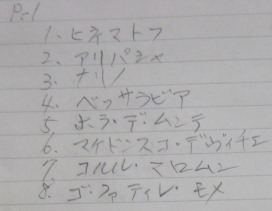 P.1
1. ヒネマトフ
2. アリパシメ
3. ナリノ
4. ベッサラビア
5. ホラ・デ・ムンテ
6. マイドンスコ・デヴィチェ
7. コルル・マロムン
8. ゴ・ファティレ・モメ